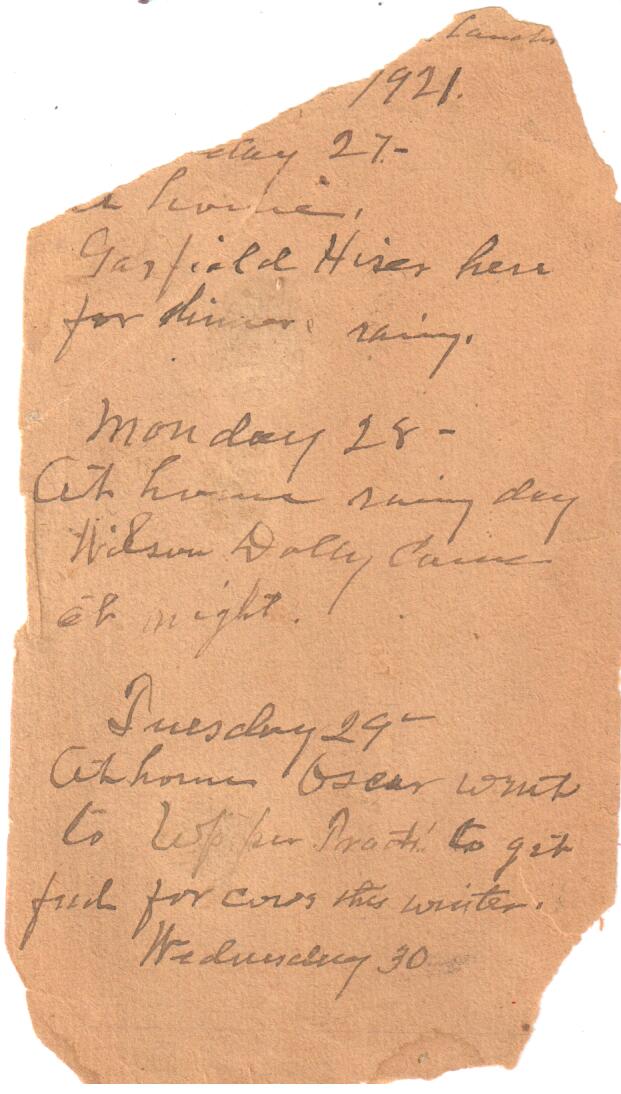 1921.
day 27-
at home,
Garfield Hiser here
for dinner. rainy.
Monday 28-
At home rainy day
Wilson Dolly came
at night.
Tuesday 29-
At home Oscar went
to Upper Tract to get
feed for cows this winter.
Wednesday 30